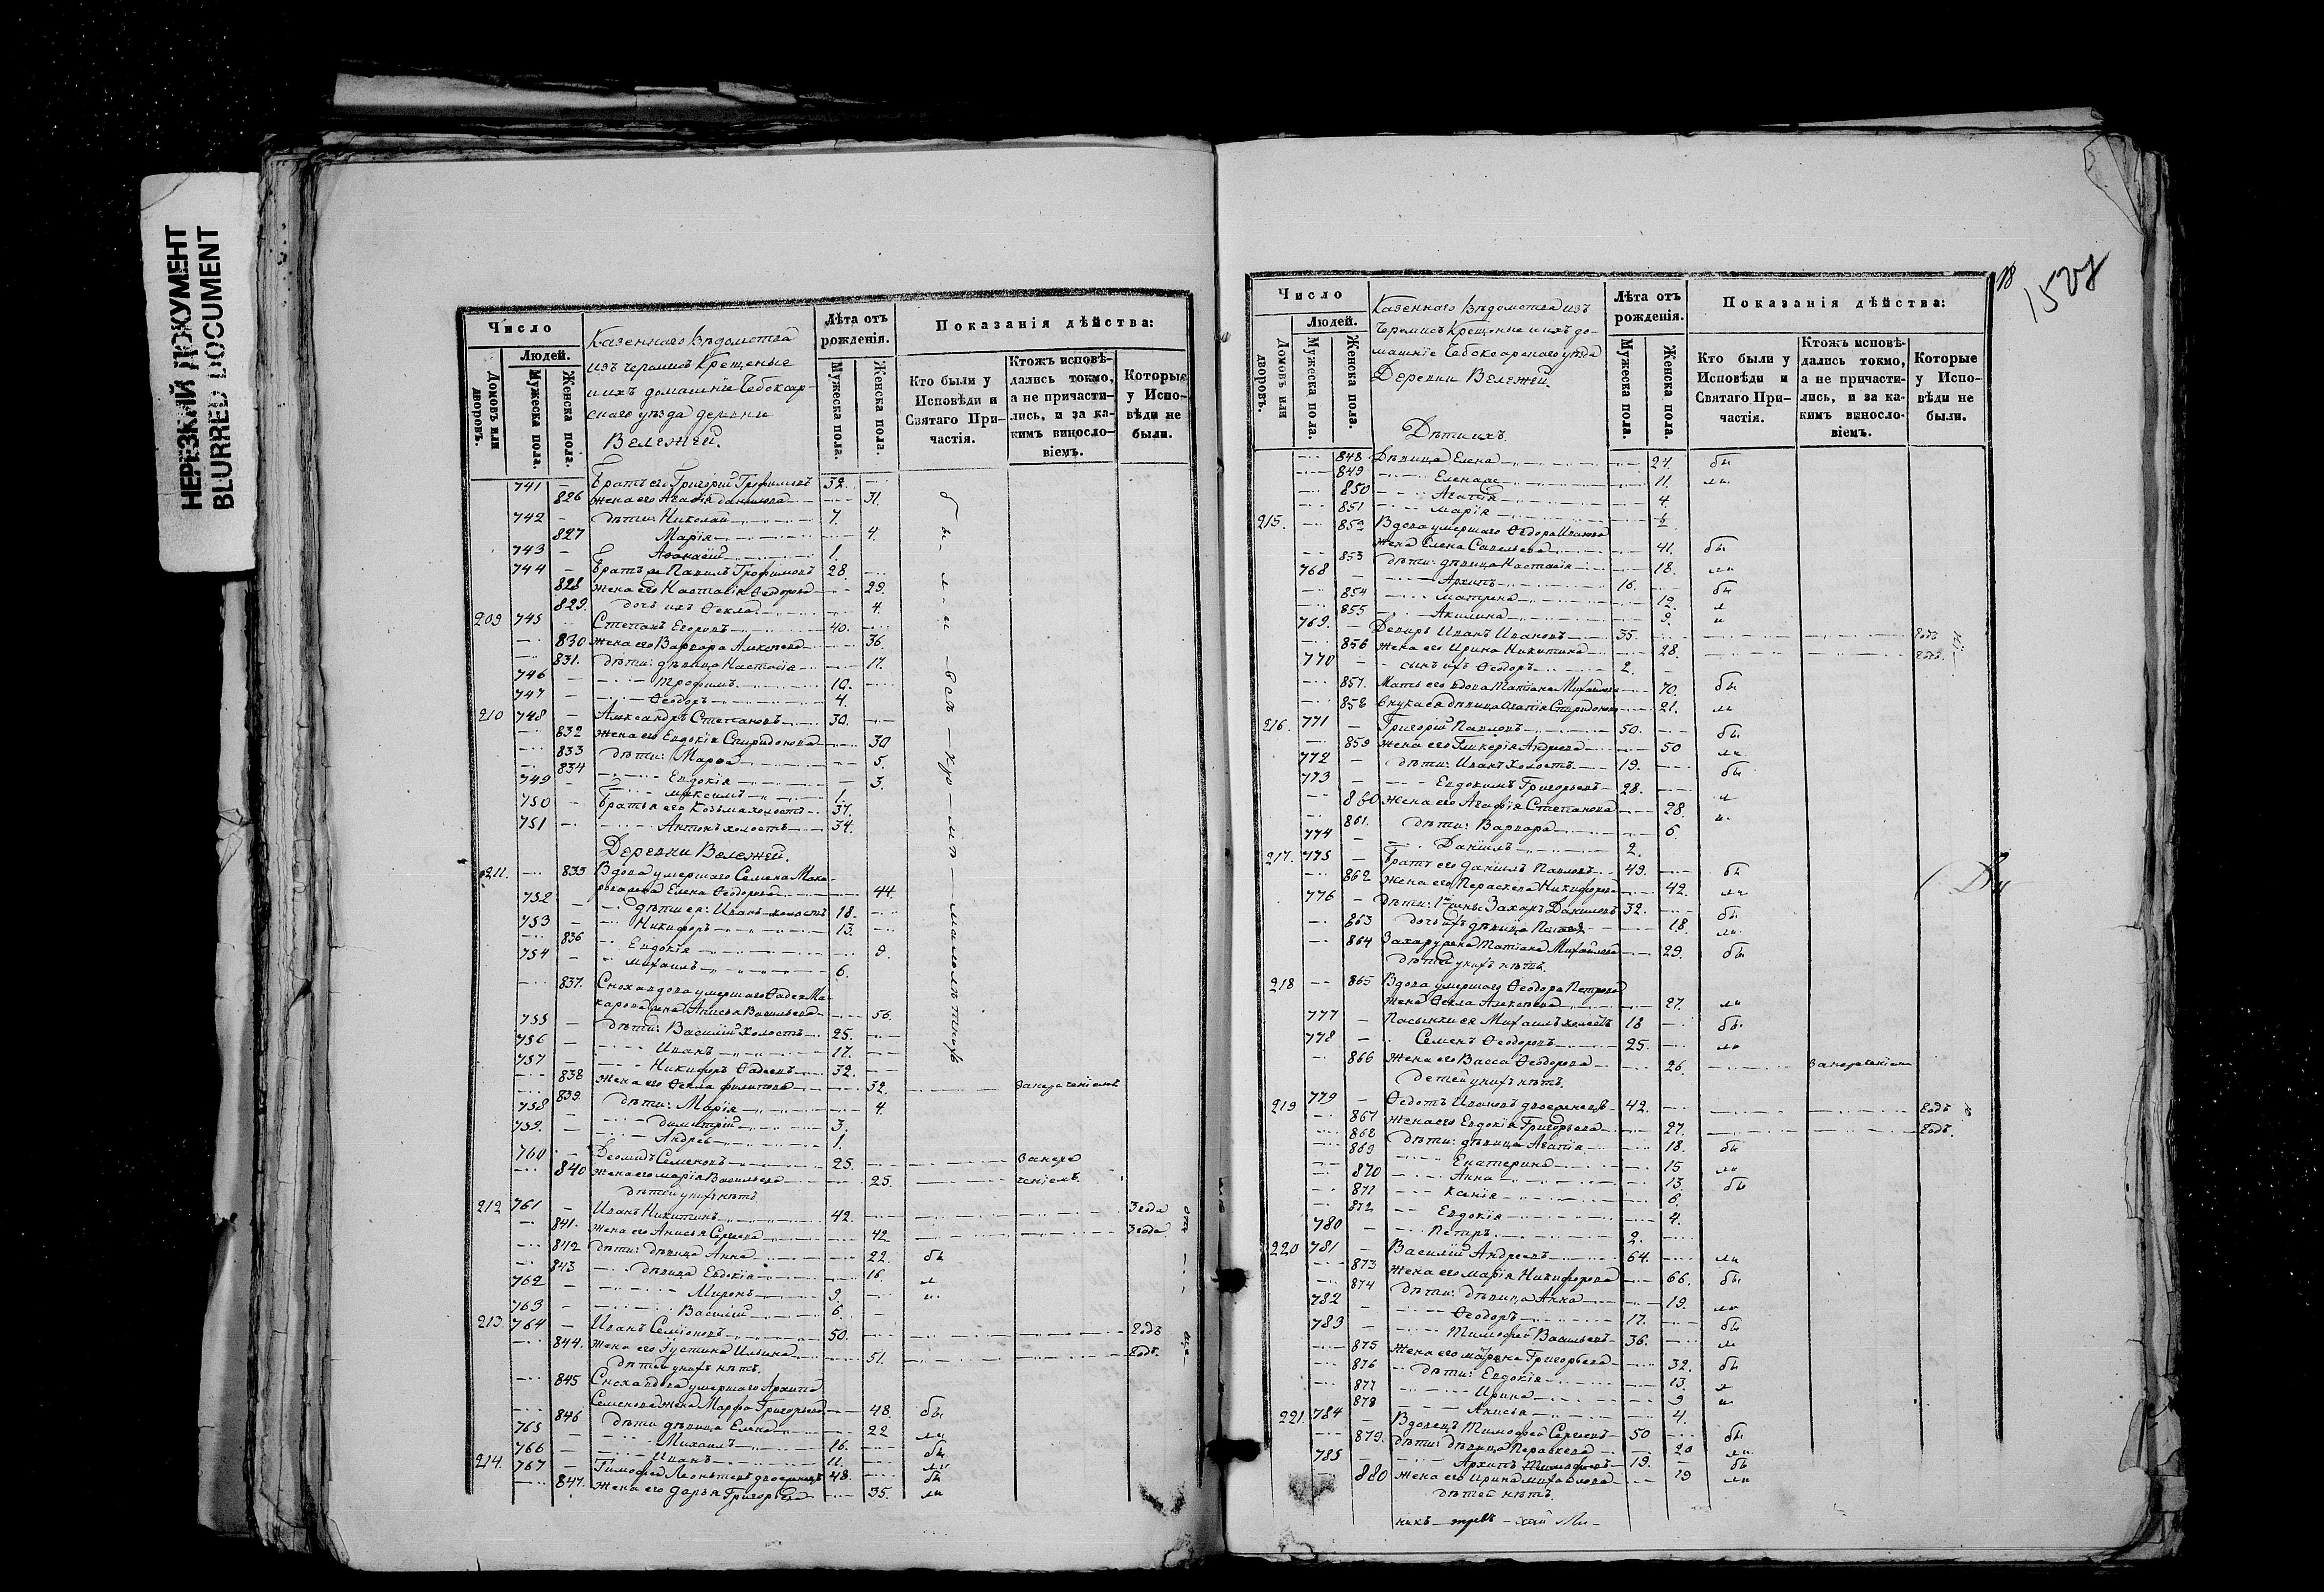 НЕРЕЗКИЙ ДОКУМЕНТ
BLURRED DOCUMENT
Число
Людей.
Домовъ или дворовъ.
Мужеска пола.
Женска пола.
Казеннаго Вѣдомства
изъ черемисъ Крещеные
и ихъ домашніе Чебоксар-
скаго уѣзда деревни
Вележей.
Лѣта отъ рожденія.
Мужеска пола.
Женска пола.
Показанія дѣйства:
Кто были у Исповѣди и Святаго При-частія.
Ктожъ исповѣ-дались токмо, а не причасти-лись, и за ка-кимъ винослo-віемъ.
Которые у Испо-вѣди не были.
741 Братъ его Григорій Трофимовъ 32.
826 Жена его Агафія Данилова 31.
742 дѣти: Николай 7.
827 Марія 4.
743 Афанасій 1.
744 Братъ Павилъ Трофимовъ 28.
828 Жена его Настасія Ѳедорова 29.
829. дочь ихъ Ѳекла 4.
209 745 Степанъ Егоровъ 40.
830 Жена его Варвара Алексѣева 36.
831. дѣти: дѣвица Настасія 17.
746 Трофимъ 10.
747 Ѳеодоръ 4.
210 748 Александръ Степановъ 30.
832 Жена его Евдокія Спиридонова 30
833 дѣти: Марѳа 5.
834 Евдокія 3.
749 Максимъ 1.
750 Братья его Козьма холостъ 37.
751 Антонъ холостъ 34.
Деревни Вележей.
211. 835 Вдова умершаго Семена Мака-
рова Елена Ѳеодорова 44.
752 дѣти ея: Иванъ холостъ 18.
753 Никифоръ 13.
836 Евдокія 9.
754 Михаилъ 6.
837. Сноха вдова умершаго Ѳадея Ма-
карова жена Анисья Васильева 56.
755 дѣти: Василій холостъ 25.
756 Иванъ 17.
757 Никифоръ Ѳадеевъ 32.
838 Жена его Ѳекла Филипова 32. за нерачениемъ
839. дѣти: Марія 4.
758 Димитрій 3.
759. Андрей 1.
760 Деомидъ Семеновъ 25. за нера
840 Жена его Марія Васильева 25. чениемъ.
дѣтей у нихъ нѣтъ
212 761 Иванъ Никитинъ 42. 3 года
841. Жена его Анисья Сергеева 42 3 года
842 дѣти: дѣвица Анна 22. бы
843 дѣвица Евдокія 16. л
762 Миронъ 9. и
763 Василій 6.
213 764 Иванъ Семіоновъ 50. 2 годъ
844. Жена его Іустина Ильина 51. 2 годъ.
дѣтей у нихъ нѣтъ.
845 Сноха вдова умершаго Архипа
Семенова жена Марфа Григорьева 48. бы
846 дѣти дѣвица Елена 22 ли
765 Михаилъ 16. бы
766 Иванъ 11. ли
214. 767 Тимофей Леонтьевъ двоеженецъ 48. бы
847. Жена его Дарья Григорьева 35. ли
бы-ли-вси-кро-мѣ-малолѣтнихъ
18
1528
Число
Людей.
Домовъ или дворовъ.
Мужеска пола.
Женска пола.
Казеннаго Вѣдомства изъ
Черемисъ Крещеные и ихъ до-
машніе Чебоксарскаго уѣзда
Деревни Вележей.
Лѣта отъ рожденія.
Мужеска пола.
Женска пола.
Показанія дѣйства:
Кто были у Исповѣди и Святаго При-частія.
Ктожъ исповѣ-дались токмо, а не причасти-лись, и за ка-кимъ винослo-віемъ.
Которые у Испо-вѣди не были.
Дѣти ихъ.
848 Дѣвица Елена 21. бы
849 Елена 11. ли
850 Агафія 4.
851 Марія
215. 852 Вдова умершаго Ѳедора Иванова
жена Елена Савельева 41. бы
853 дѣти: дѣвица Настасія 18. ли
768 Архипъ 16. бы
854 Матрена 12. л
855 Акилина 9. и
769. Деверь Иванъ Ивановъ 35. 2 годъ
856 Жена его Ирина Никитина 28. 2 годъ
770 сынъ ихъ Ѳеодоръ 2.
857. Мать его вдова Татіана Михайлова 70. бы
858 внука ея дѣвица Агафія Спиридонова 21. ли
216. 771 Григорій Павловъ 50. бы
859 Жена его Гликерія Андреева 50 ли
772 дѣти: Иванъ холостъ 19. бы
773 Евдокимъ Григорьевъ 28. л
860 Жена его Агафія Степанова 28. и
861. дѣти: Варвара 6.
774 Даніилъ 2.
217. 775 Братъ его Даніилъ Павловъ 49. бы
862 Жена его Параскева Никифорова 42. ли
776 дѣти: 1й жены Захаръ Даниловъ 32. бы
863 дочь ихъ дѣвица 18. ли
864 Захару жена Татіана Михайлова 29. бы
дѣтей у нихъ нѣтъ.
218 865 Вдова умершаго Ѳеодора Петрова
жена Ѳекла Алексѣева 27. ли
777 Пасынки ея Михаилъ холостъ 18 бы
778 Семенъ Ѳеодоровъ 25. ли
866 Жена его Васса Ѳеодорова 26. за нерачением
детей у нихъ нѣтъ.
219 779 Ѳедотъ Ивановъ двоеженецъ 42. 2 годъ
867 Жена его Евдокія Григорьева 27. 2 годъ.
868 дѣти: дѣвица Агафія 18. бы
869 Екатерина 15 ли
870 Анна 13. бы
871 Ксенія 6.
872 Евдокія 4.
780 Петръ 2.
220 781 Василій Андреевъ 64. ли
873 Жена его Марія Никифорова 66. бы
874 дѣти: дѣвица Анна 19. ли
782 Ѳеодоръ 17. бы
783 Тимофей Васильевъ 36. ли
875 Жена его Марѳна Григорьева 32. бы
876 дѣти: Евдокія 13. л
877 Ирина 9 и
878 Анисья 4.
221. 784 Вдовецъ Тимофей Сергеевъ 50 бы
879. дѣти: дѣвица Параскева 20 ли
785 Архипъ Тимофеевъ 19. бы
880 Жена его Ирина Михайлова 19 ли
дѣтей нѣтъ.